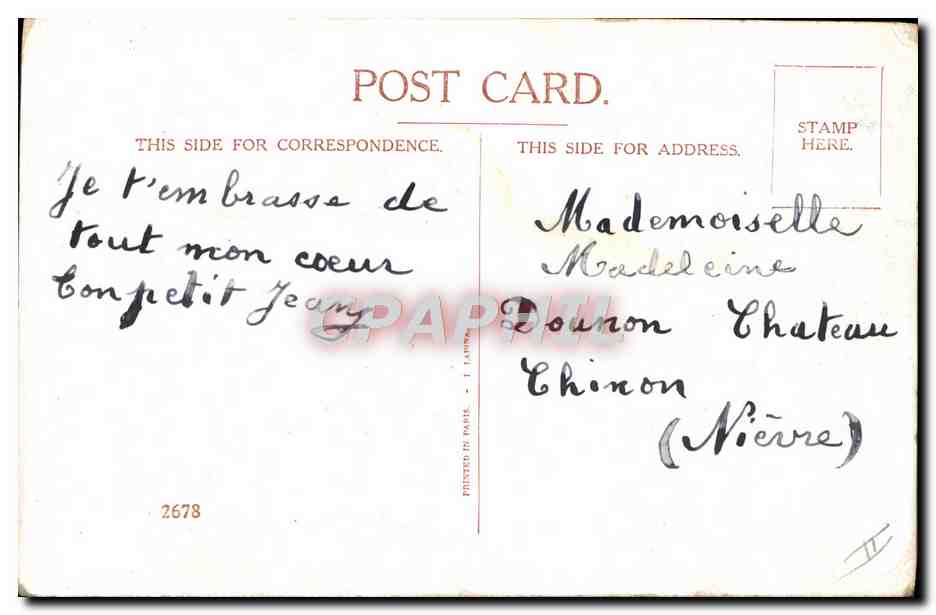 POST CARD.
THIS SIDE FOR CORRESPONDENCE.
THIS SIDE FOR ADDRESS.
STAMP
HERE.
Je t'embrasse de
tout mon cœur
Ton petit Jean
Mademoiselle
Madeleine
Chateau
Chinon
(Nièvre)
CPAPHIL
PRINTED IN PARIS. - I LAPINA
2678
II